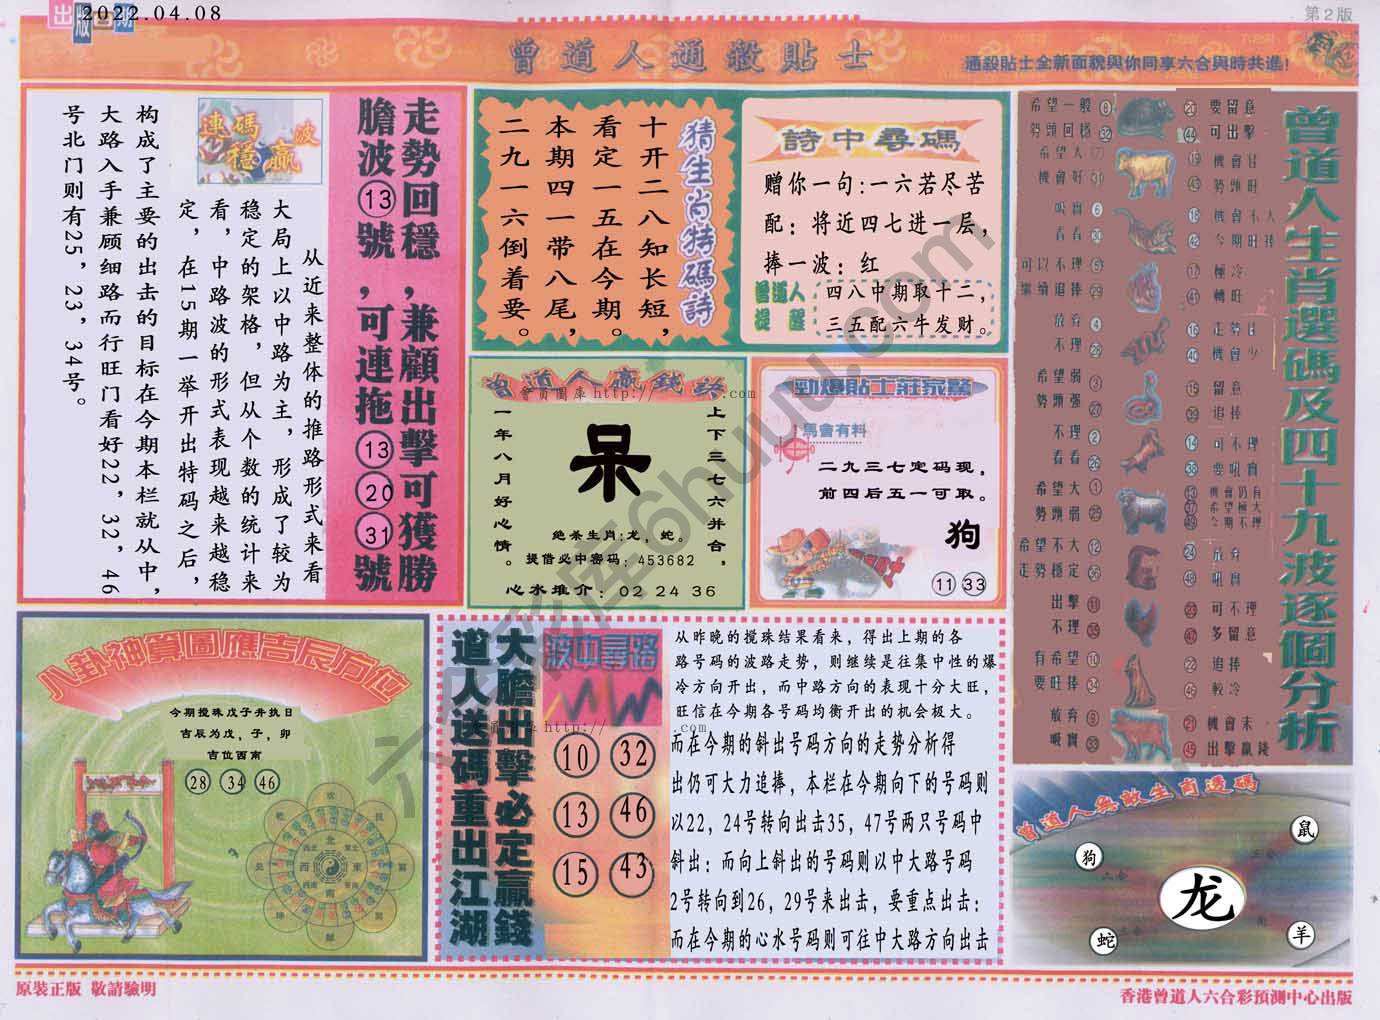 出版日期
2022.04.08
第2版
曾道人通殺貼士
通殺貼士全新面貌與你同享六合與時共進!
走勢回穩,兼顧出擊可獲勝
膽波⑬號,可連拖⑬⑳㉛號
連碼波
穩贏
从近来整体的推路形式来看
大局上以中路为主,形成了较为
稳定的架格,但从个数的统计来
看,中路波的形式表现越来越稳
定,在15期一举开出特码之后,
构成了主要的出击的目标在今期本栏就从中,
大路入手兼顾细路而行旺门看好22,32,46
号北门则有25,23,34号。
猜生肖特碼詩
十开二八知长短,
看定一五在今期。
本期四一带八尾,
二九一六倒着要。
詩中尋碼
赠你一句:一六若尽苦
配:将近四七进一层,
捧一波:红
曾道人
提醒
四八中期取十二,
三五配六牛发财。
曾道人贏錢訣
會員圖库 http:// .com
上下三七六并合,
一年八月好心情。
呆
绝杀生肖:龙,蛇。
提借必中密码:453682
心水推介:02 24 36
勁爆貼士莊家驚
馬會有料
二九三七定码现,
前四后五一可取。
狗
11 33
曾道人生肖選碼及四十九波逐個分析
希望一般
勢頭回穩 32
20 要留意
44 可出擊
希望大
機會好
19 機會佳
43 勢頭旺
吸實 6
看看 30
18 機會不大
42 今期旺捧
可以不理 5
繼續追捧 29
17 極冷
41 轉旺
放弃 4
不理
16 走勢佳
40 機會少
希望弱 3
勢頭强 27
15 留意
39 追捧
不理 2
看看 26
14 可不理
38 要吸實
希望大 1
勢頭弱 25
13 機會仍有
37 希望極大
49 今期不理
希望不大 12
走勢穩定
24 放弃
48 吸實
出擊 11
不理 35
23 可不理
47 多留意
有希望 10
要旺捧 34
22 追捧
46 較冷
放弃 9
吸實 33
21 機會末
45 出擊贏錢
八卦神算圖應吉辰方位
今期搅珠戊子井执日
吉辰为戊,子,卯
吉位西南
28 34 46
大膽出擊必定贏錢
道人送碼重出江湖
波中尋路
圖库 http:// .com
10 32
13 46
15 43
从昨晚的搅珠结果看来,得出上期的各
路号码的波路走势,则继续是往集中性的爆
冷方向开出,而中路方向的表现十分大旺,
旺信在今期各号码均衡开出的机会极大。
而在今期的斜出号码方向的走势分析得
出仍可大力追捧,本栏在今期向下的号码则
以22,24号转向出击35,47号两只号码中
斜出:而向上斜出的号码则以中大路号码
2号转向到26,29号来出击,要重点出击:
而在今期的心水号码则可往中大路方向出击
曾道人無敵生肖透碼
鼠
狗
龙
蛇
羊
六彩库6huuu.com
原裝正版 敬請驗明
香港曾道人六合彩預測中心出版